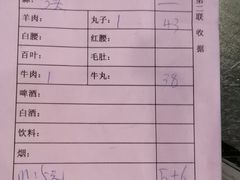 羊肉: 丸子: 1 43
白腰: 红腰:
百叶: 毛肚:
牛肉: 1 牛丸: 38
啤酒:
白酒:
饮料:
烟:
第二联 收据